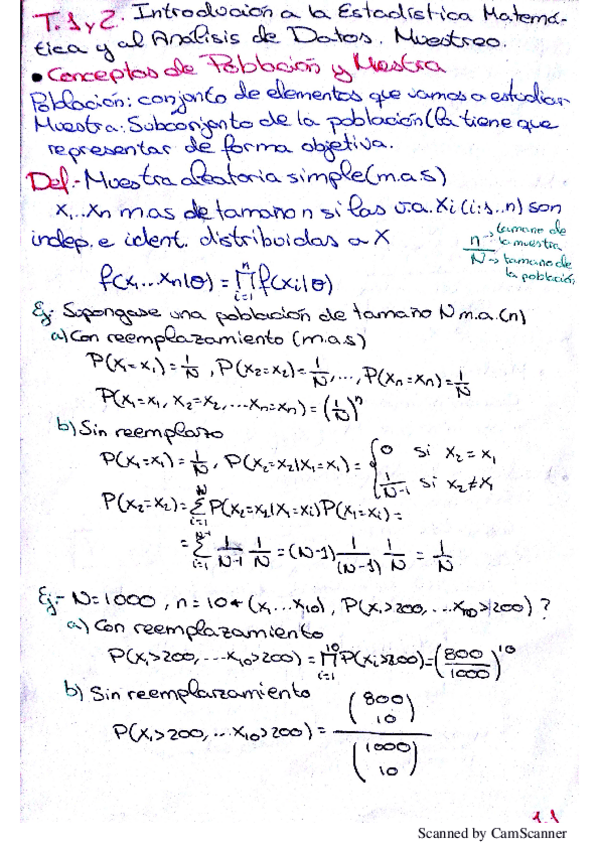 T. 1 y 2. Introducción a la Estadística Matemá-
tica y al Análisis de Datos. Muestreo.
• Conceptos de Población y Mestra
Población: conjunto de elementos que vamos a estudiar
Muestra: Subconjonto de la población (la tiene que
representar de forma objetiva.
Def.- Muestra aleatoria simple (m.a.s)
X₁...Xn m.a.s de tamaño n si las v.a. Xi (i:1..n) son
indep. e ident. distribuidas a X
n → tamaño de la muestra
N → tamaño de la población
f(x₁...xn|θ) = ∏ⁿᵢ₌₁ f(xi|θ)
Ej.- Supongase una población de tamaño N m.a.(n)
a) Con reemplazamiento (m.a.s)
P(X₁=x₁) = 1/N, P(X₂=x₂) = 1/N, ..., P(Xn=xn) = 1/N
P(X₁=x₁, X₂=x₂, ...Xn=xn) = (1/N)ⁿ
b) Sin reemplazo
P(X₁=x₁) = 1/N, P(X₂=x₂|X₁=x₁) = { 0 si x₂=x₁
1/(N-1) si x₂≠x₁
P(X₂=x₂) = ∑ᴺᵢ₌₁ P(X₂=x₂|X₁=xi) P(X₁=xi) =
= ∑ᴺ⁻¹ᵢ₌₁ 1/(N-1) 1/N = (N-1) 1/(N-1) 1/N = 1/N
Ej.- N=1000, n=10 (x₁...x₁₀), P(X₁>200, ...X₁₀>200)?
a) Con reemplazamiento
P(X₁>200, ...X₁₀>200) = ∏¹⁰ᵢ₌₁ P(Xi>200) = (800/1000)¹⁰
b) Sin reemplazamiento
P(X₁>200, ...X₁₀>200) = (800 10)/(1000 10)
1.1
Scanned by CamScanner